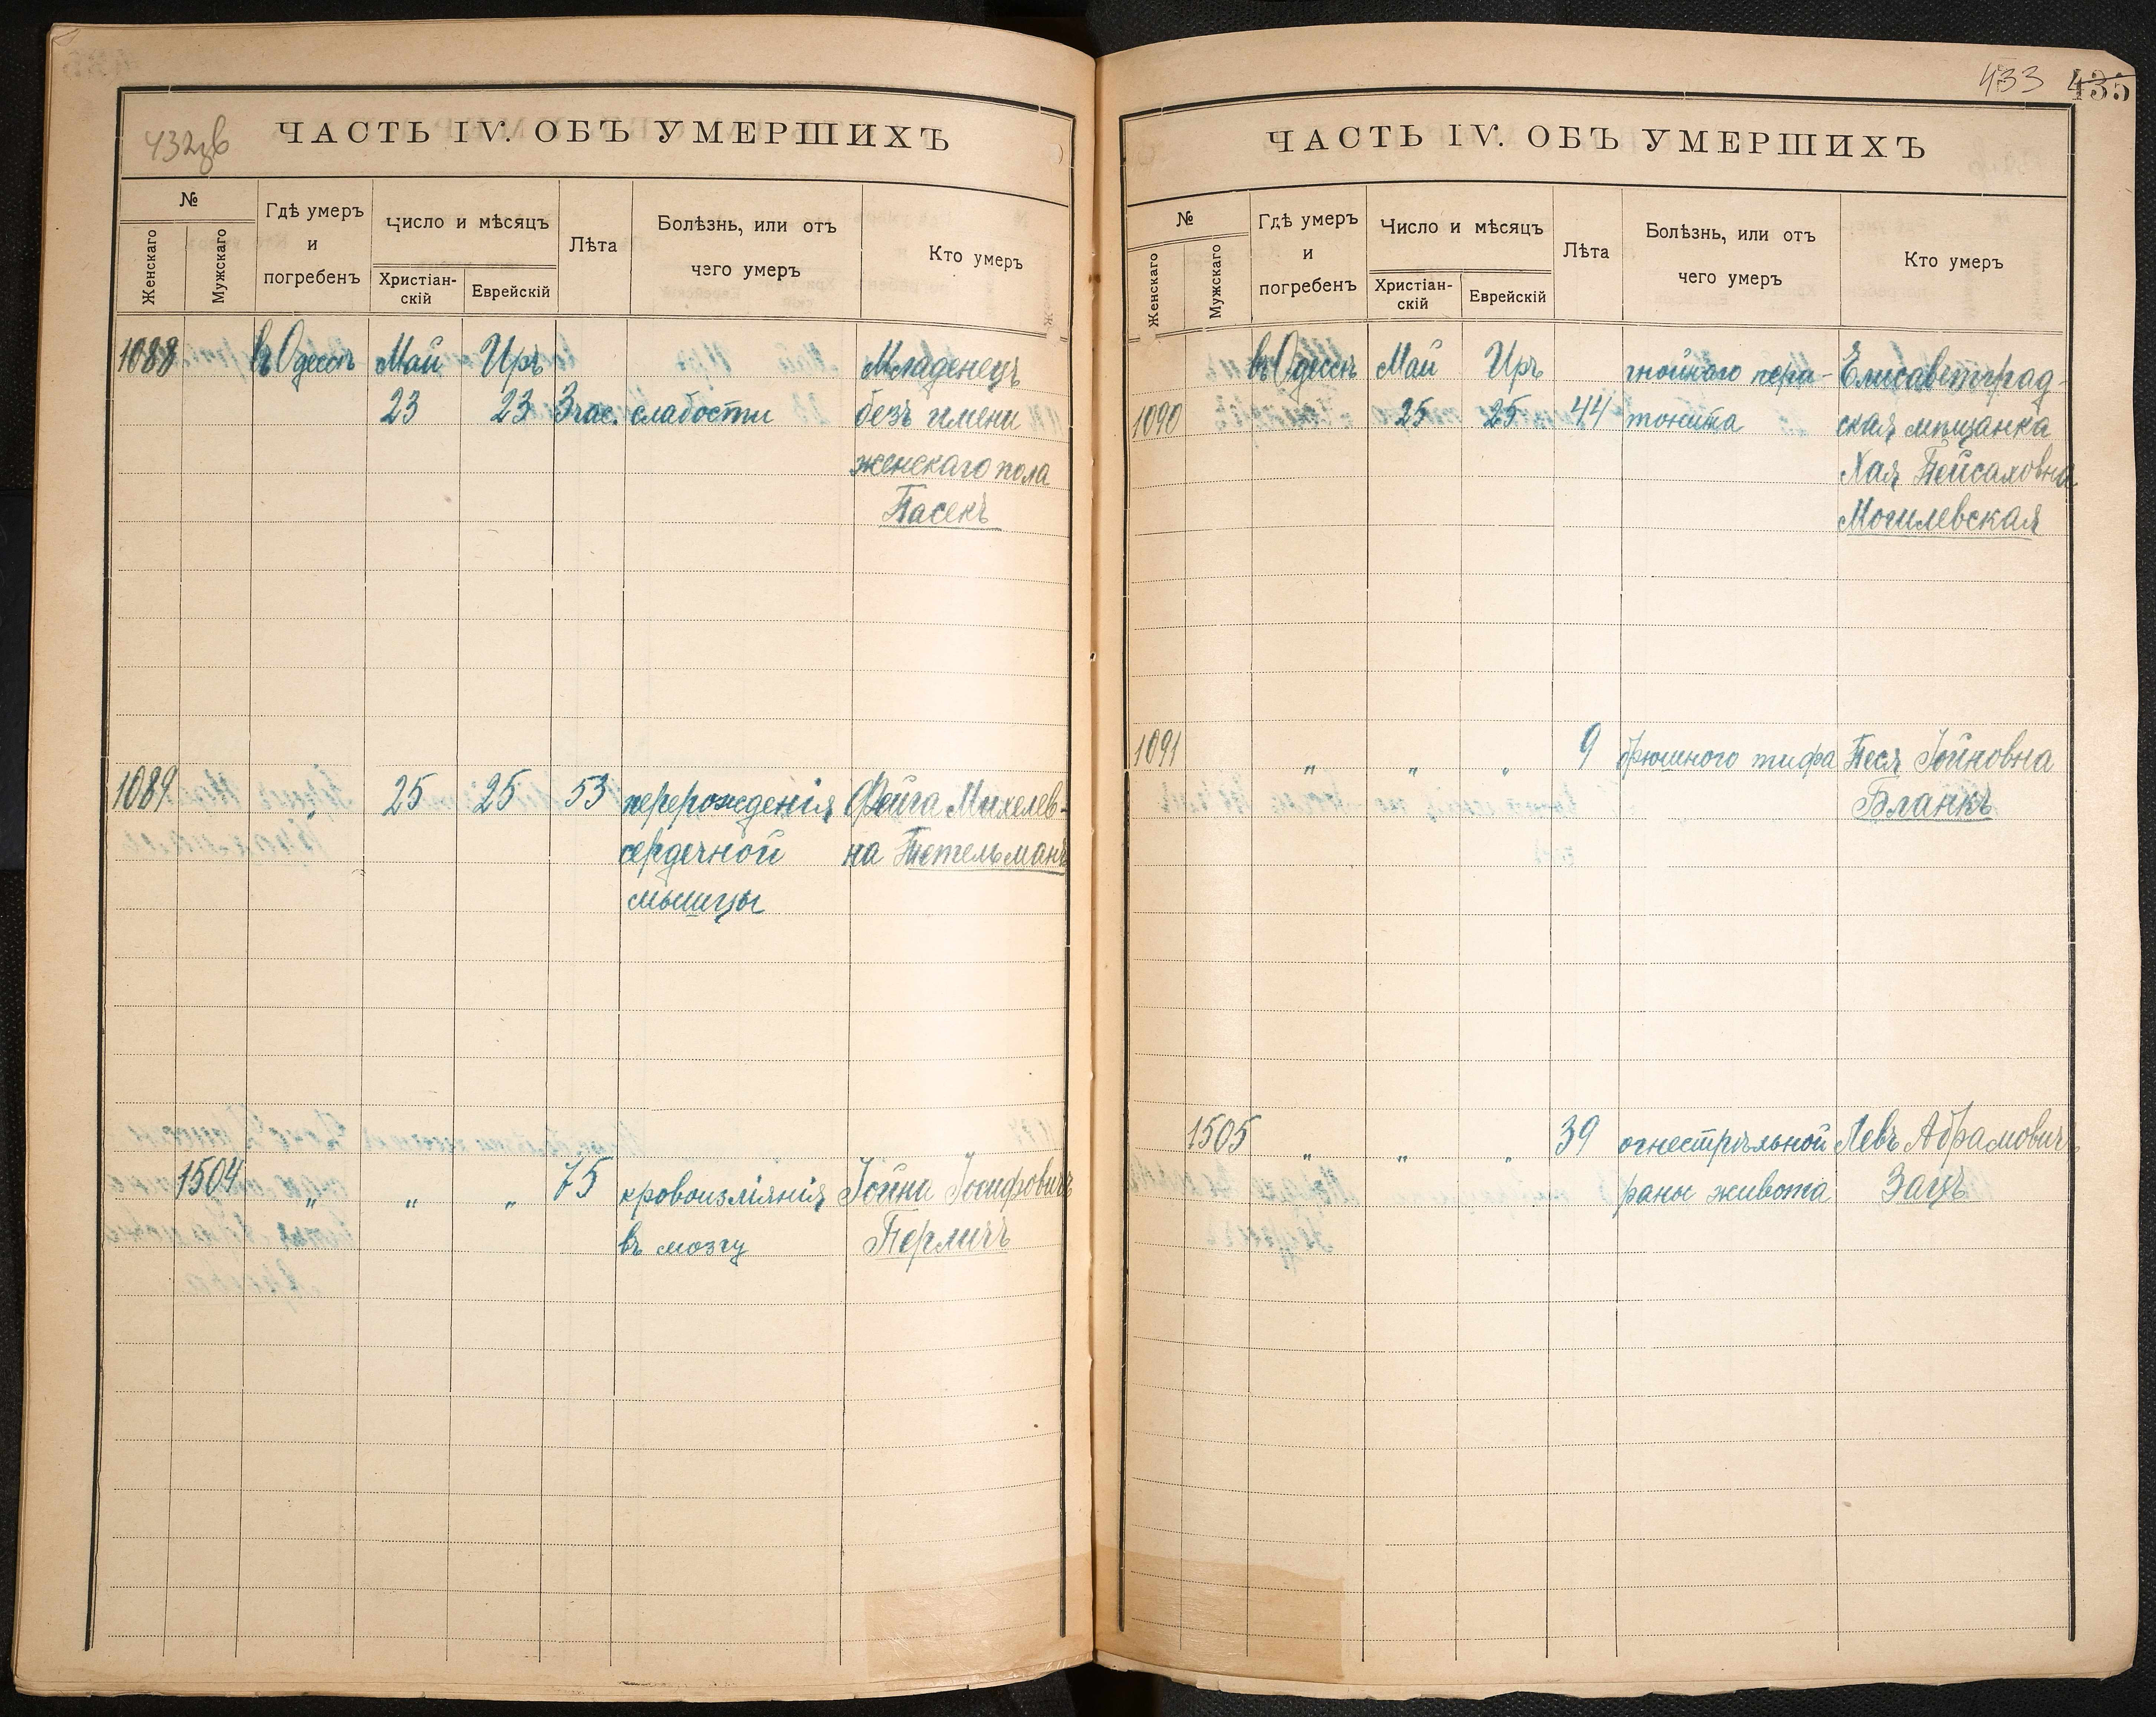 432зв
ЧАСТЬ IV. ОБЪ УМЕРШИХЪ
№
Женскаго
Мужскаго
Гдѣ умеръ
и
погребенъ
Число и мѣсяцъ
Христіан-
скій
Еврейскій
Лѣта
Болѣзнь, или отъ
чего умеръ
Кто умеръ
1088 въ Одессѣ Май Иръ Младенецъ
23 23 3 час. слабости безъ имени
женскаго пола
Пасекъ
1089 " 25 25 53 перерожденія Фейга Михелев-
сердечной на Тетельманъ
мышцы
1504 " " " 75 кровоизліянія Іойна Іосифовичъ
въ мозгу Перличъ
433 435
ЧАСТЬ IV. ОБЪ УМЕРШИХЪ
№
Женскаго
Мужскаго
Гдѣ умеръ
и
погребенъ
Число и мѣсяцъ
Христіан-
скій
Еврейскій
Лѣта
Болѣзнь, или отъ
чего умеръ
Кто умеръ
въ Одессѣ Май Иръ гнойного пери- Елисаветград-
1090 25 25 44 тонита ская мѣщанка
Хая Пейсаховна
Могилевская
1091 " " " 9 брюшного тифа Песя Іойновна
Бланкъ
1505 " " " 39 огнестрѣльной Левъ Абрамовичъ
раны живота Зацъ